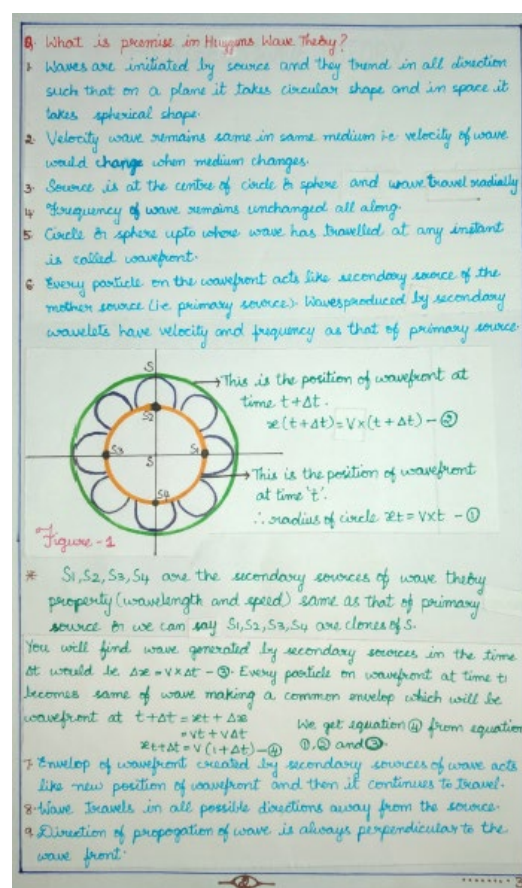 Q. What is premise in Huygens Wave Theory?
1. Waves are initiated by source and they trend in all direction
such that on a plane it takes circular shape and in space it
takes spherical shape.
2. Velocity wave remains same in same medium i.e velocity of wave
would change when medium changes.
3. Source is at the centre of circle or sphere and wave travel radially
4. Frequency of wave remains unchanged all along.
5. Circle or sphere upto where wave has travelled at any instant
is called wavefront.
6. Every particle on the wavefront acts like secondary source of the
mother source (i.e. primary source). Waves produced by secondary
wavelets have velocity and frequency as that of primary source.
S
This is the position of wavefront at
time t+Δt.
x(t+Δt)=V×(t+Δt)-②
S2
S3
S
S1
This is the position of wavefront
at time 't'.
S4
∴ radius of circle xt=V×t -①
Figure-1
* S1,S2,S3,S4 are the secondary sources of wave theory
property (wavelength and speed) same as that of primary
source or we can say S1,S2,S3,S4 are clones of S.
You will find wave generated by secondary sources in the time
Δt would be Δx=V×Δt -③. Every particle on wavefront at time t1
becomes same of wave making a common envelop which will be
wavefront at t+Δt=xt+Δx
=Vt+VΔt
xt+Δt=V(1+Δt)-④
We get equation ④ from equation
①,② and ③.
7. Envelop of wavefront created by secondary sources of wave acts
like new position of wavefront and then it continues to travel.
8. Wave Travels in all possible directions away from the source.
9. Direction of propogation of wave is always perpendicular to the
wave front.